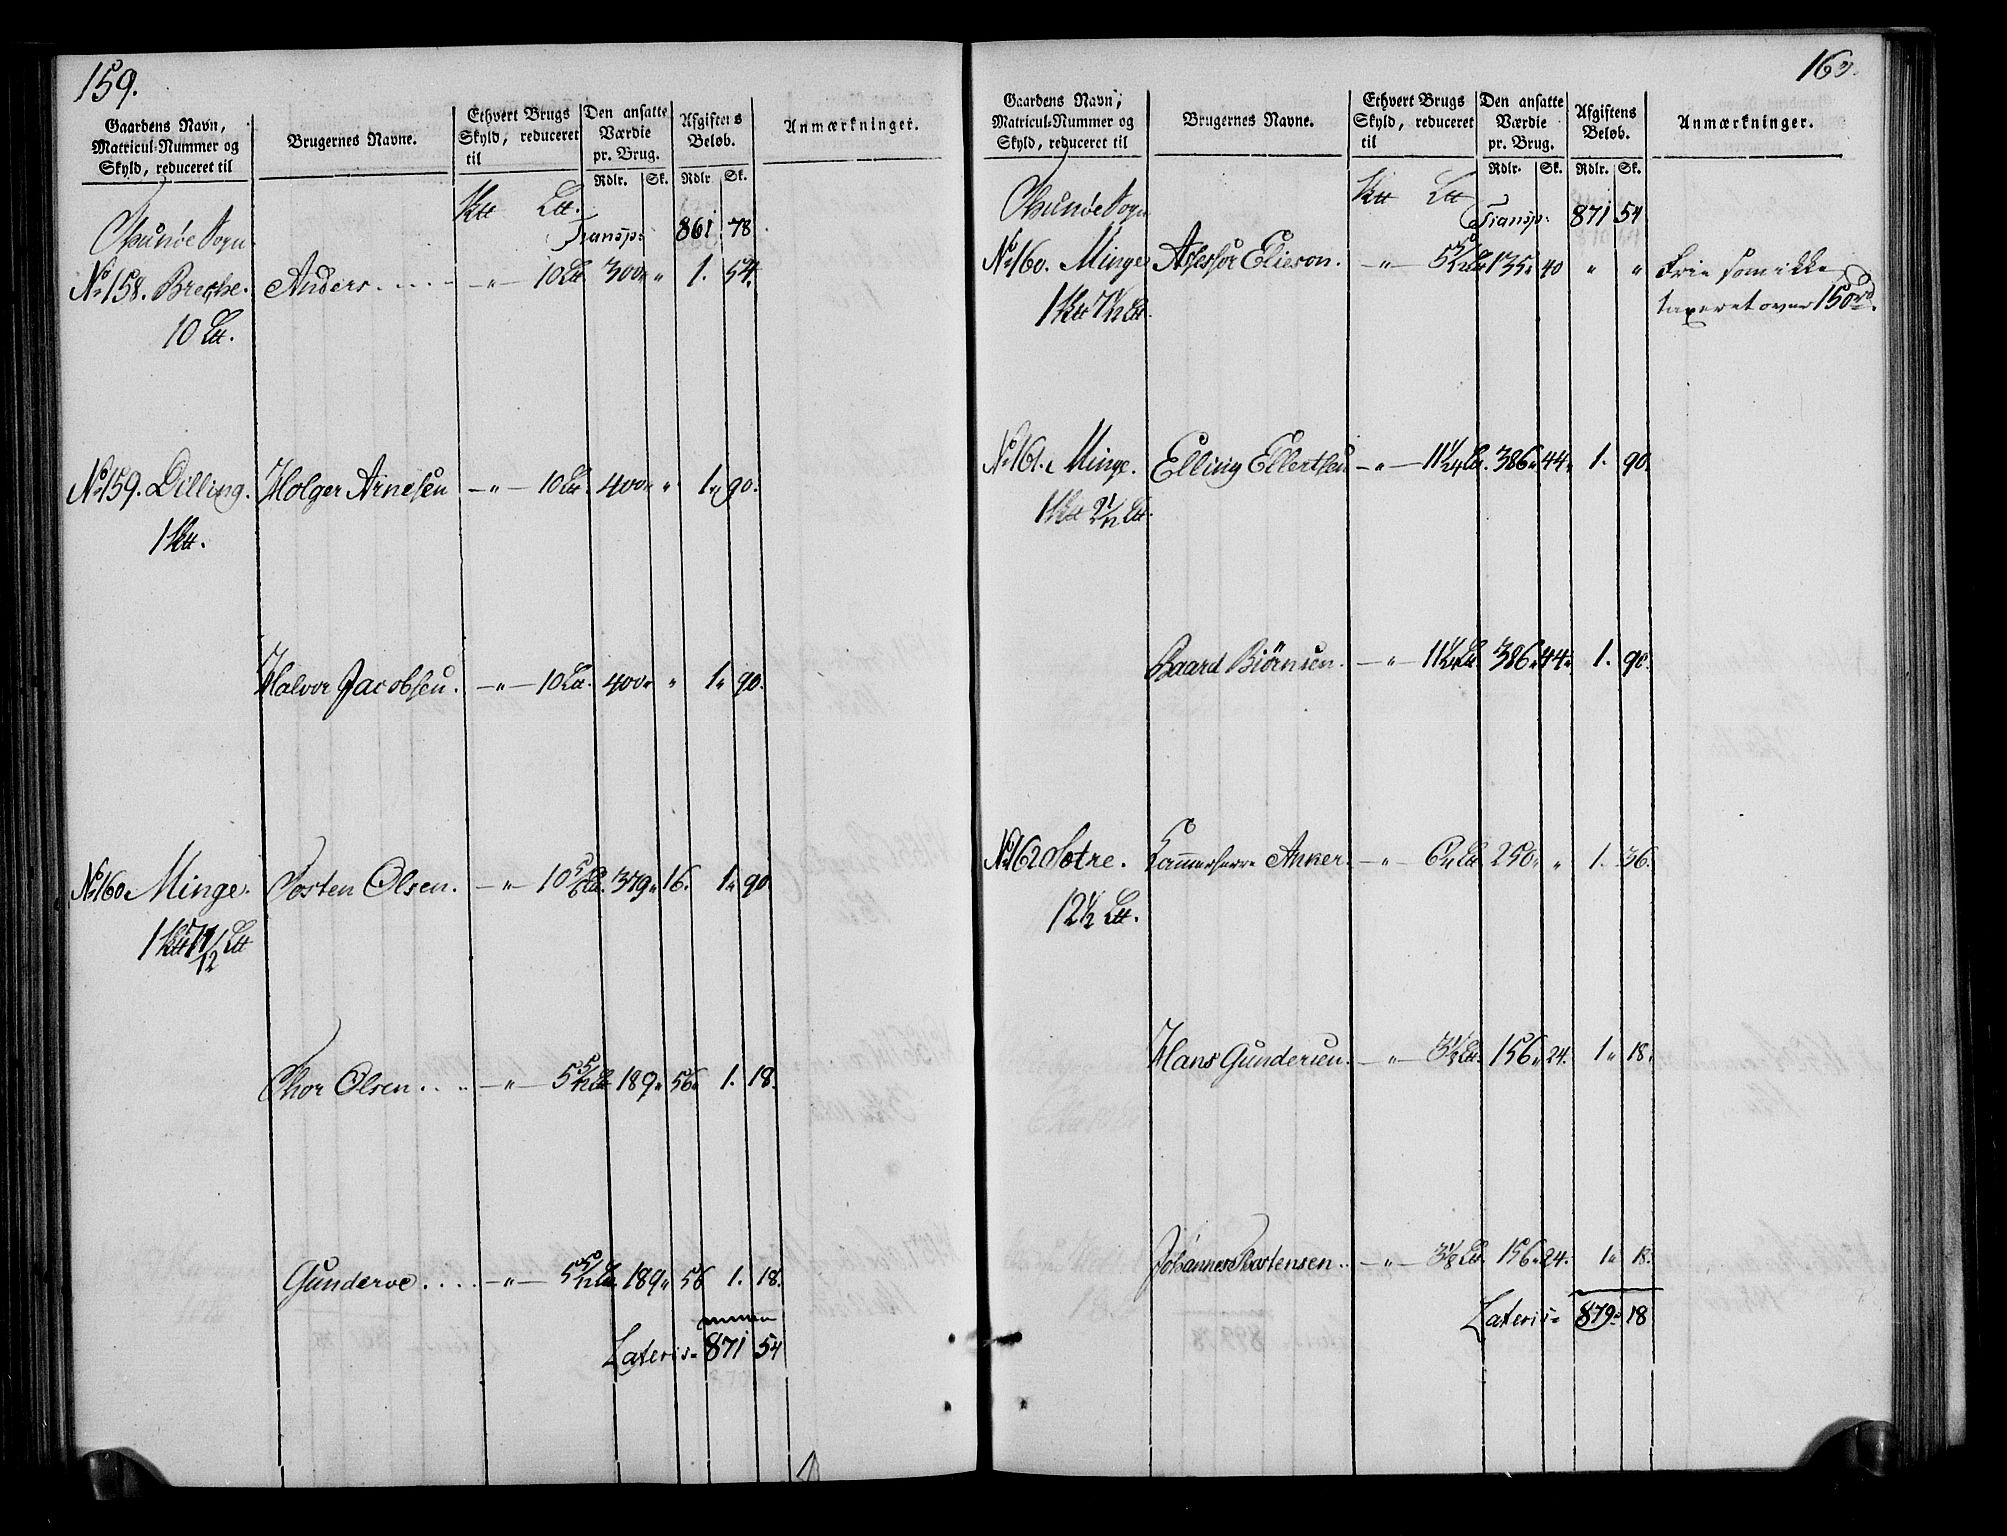 159.
Gaardens Navn, Matricul-Nummer og Skyld, reduceret til | Brugernes Navne. | Ethvert Brugs Skyld, reduceret til | Den ansatte Værdie pr. Brug. | Afgiftens Beløb. | Anmærkninger.
Rdlr. | Sk. | Rdlr | Sk.
Sogn
Transp: 861 78
No 158. Anders. . . . . — " — 10 300 " " 1. 54.
10
No 159. Dilling. Holger Arnesen — " — 10 400 " " 1. 90.
1
Halvor Jacobsen. — " — 10 400 " " 1 " 90.
No 160 Minge. Tosten Olsen. — " — 10 5/6 379 " 16. 1 " 90
1 7 1/12
Thor Olsen. . . . — " — 5 5/12 189 " 56 " 1. 18.
Gunderoe. . . . — " — 5 5/12 189 " 56 1. 18.
Lateris - 871 54
160.
Gaardens Navn, Matricul-Nummer og Skyld, reduceret til | Brugernes Navne. | Ethvert Brugs Skyld, reduceret til | Den ansatte Værdie pr. Brug. | Afgiftens Beløb. | Anmærkninger.
Rdlr. | Sk. | Rdlr. | Sk.
Sogn
Transp: 871 54
No 160. Minge Assessor Elieson. — " — 5 5/12 135 " 40 " " Frie som ikke
1 taxeret over 150 rd.
No 161. Minge. Elling Ellertsen — " — 11 1/24 386 " 44 " 1. 90.
1 2 1/12
Baard Biørnsen. — " — 11 1/24 386 " 44 " 1. 90.
No 162 Sotre. Kammerherre Anker. — " — 6 1/4 250 " " 1. 36.
12 1/2
Hans Gundersen. — " — 3 1/8 156 " 24. 1 " 18.
Johannes Thostensen. . — " — 3 1/8 156 " 24. 1 " 18.
Lateris - 879 " 18